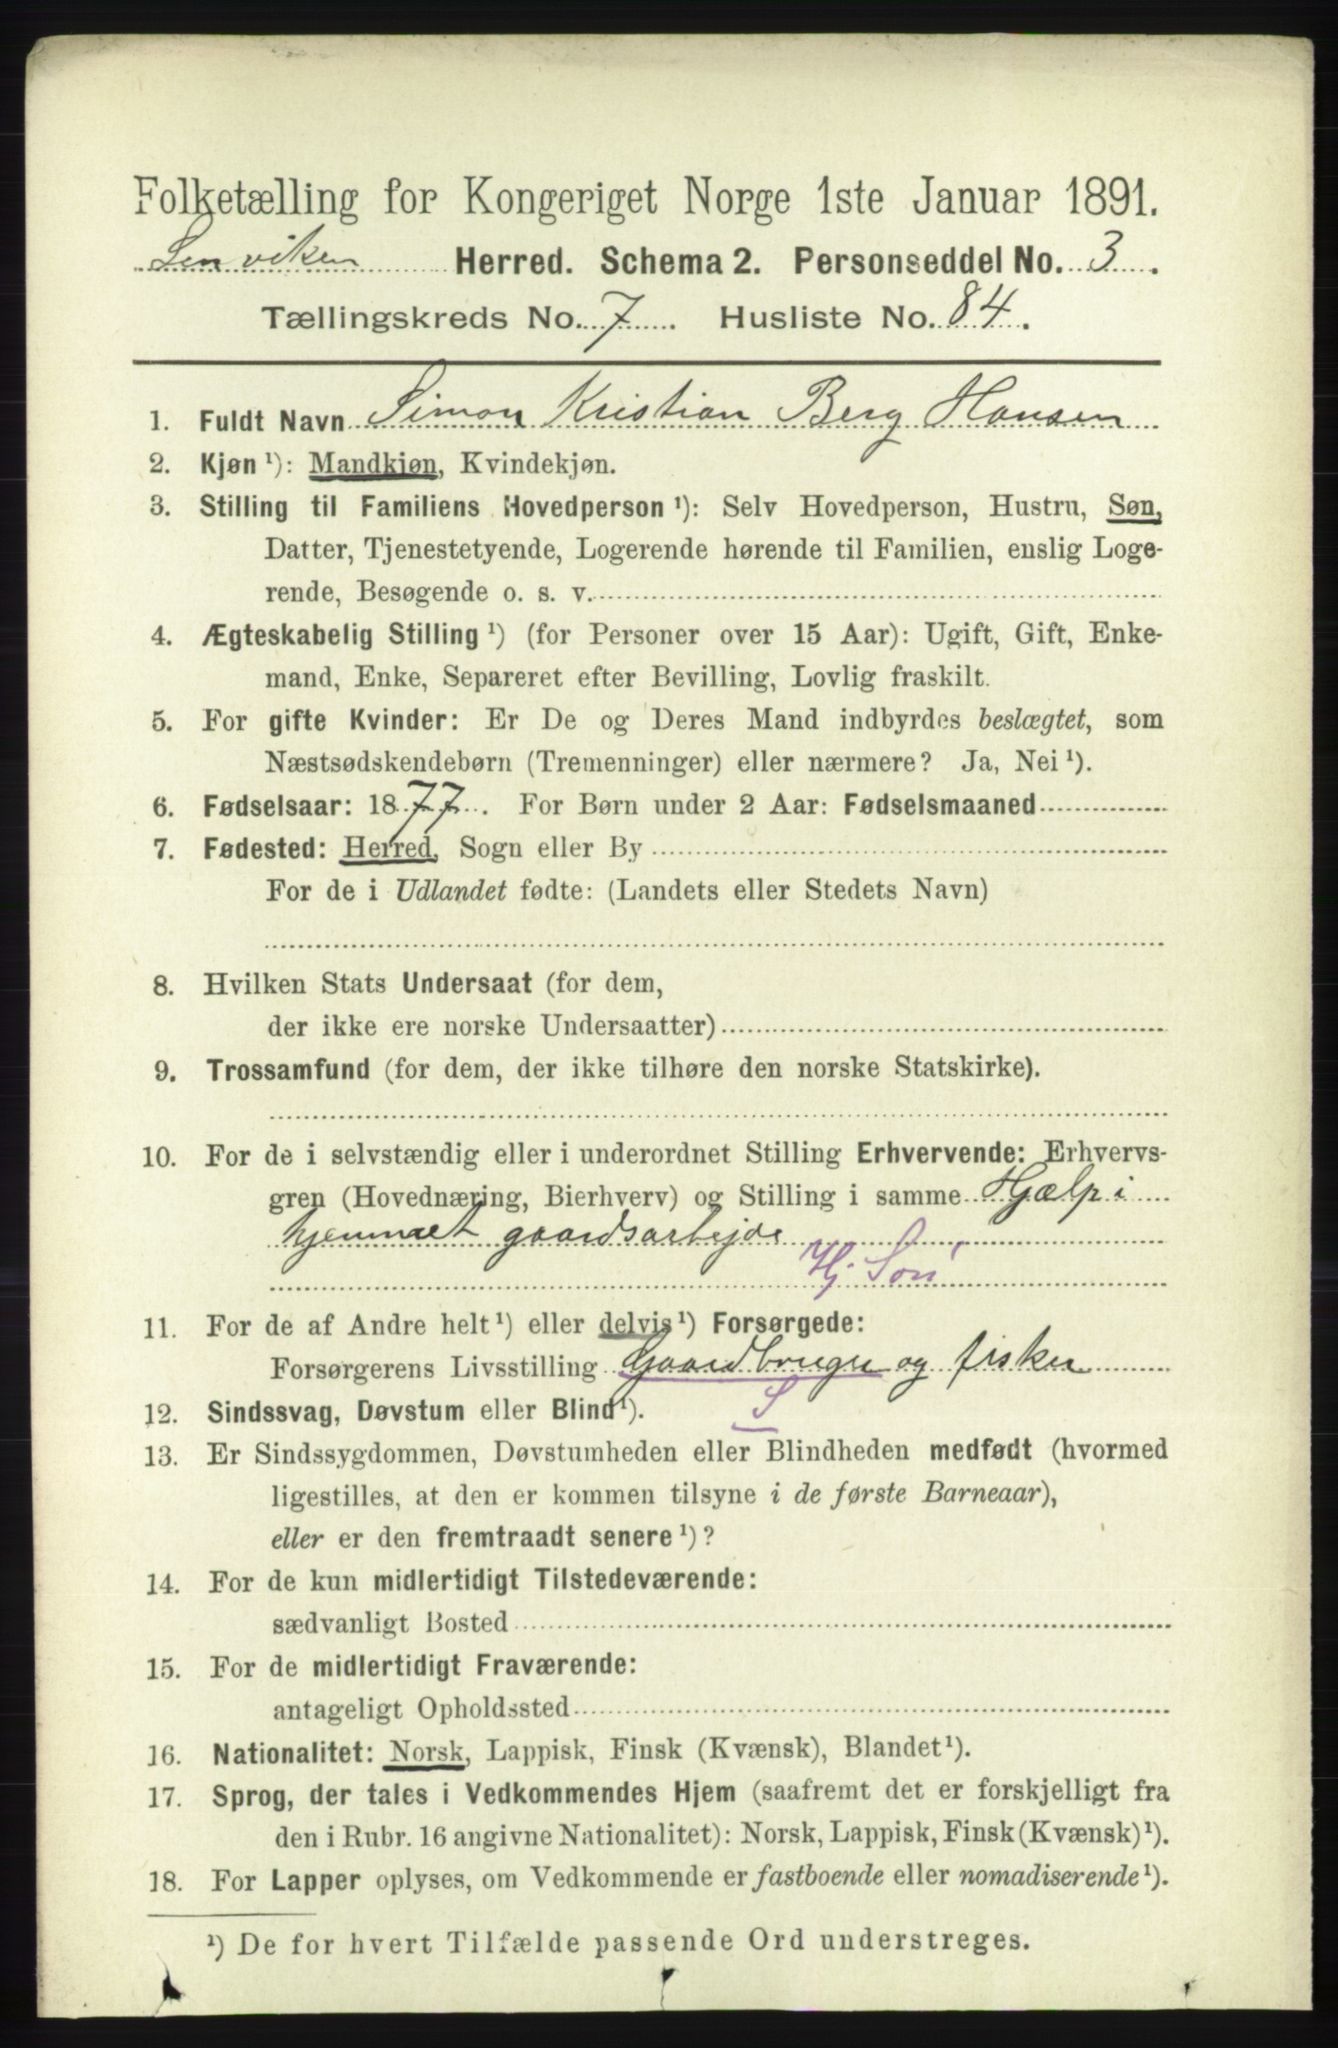 Folketælling for Kongeriget Norge 1ste Januar 1891.
Lenviken Herred. Schema 2. Personseddel No. 3.
Tællingskreds No. 7. Husliste No. 84.
1. Fuldt Navn Simon Kristian Berg Hansen
2. Kjøn ¹): Mandkjøn, Kvindekjøn.
3. Stilling til Familiens Hovedperson ¹): Selv Hovedperson, Hustru, Søn,
Datter, Tjenestetyende, Logerende hørende til Familien, enslig Loge-
rende, Besøgende o. s. v.
4. Ægteskabelig Stilling ¹) (for Personer over 15 Aar): Ugift, Gift, Enke-
mand, Enke, Separeret efter Bevilling, Lovlig fraskilt.
5. For gifte Kvinder: Er De og Deres Mand indbyrdes beslægtet, som
Næstsødskendebørn (Tremenninger) eller nærmere? Ja, Nei ¹).
6. Fødselsaar: 1877. For Børn under 2 Aar: Fødselsmaaned
7. Fødested: Herred, Sogn eller By
For de i Udlandet fødte: (Landets eller Stedets Navn)
8. Hvilken Stats Undersaat (for dem,
der ikke ere norske Undersaatter)
9. Trossamfund (for dem, der ikke tilhøre den norske Statskirke).
10. For de i selvstændig eller i underordnet Stilling Erhvervende: Erhvervs-
gren (Hovednæring, Bierhverv) og Stilling i samme Hjælp i
hjemmet gaardsarbejde
Hj. Søn
11. For de af Andre helt ¹) eller delvis ¹) Forsørgede:
Forsørgerens Livsstilling Gaardbruger og fisker
12. Sindssvag, Døvstum eller Blind ¹). S
13. Er Sindssygdommen, Døvstumheden eller Blindheden medfødt (hvormed
ligestilles, at den er kommen tilsyne i de første Barneaar),
eller er den fremtraadt senere ¹)?
14. For de kun midlertidigt Tilstedeværende:
sædvanligt Bosted
15. For de midlertidigt Fraværende:
antageligt Opholdssted
16. Nationalitet: Norsk, Lappisk, Finsk (Kvænsk), Blandet ¹).
17. Sprog, der tales i Vedkommendes Hjem (saafremt det er forskjelligt fra
den i Rubr. 16 angivne Nationalitet): Norsk, Lappisk, Finsk (Kvænsk) ¹).
18. For Lapper oplyses, om Vedkommende er fastboende eller nomadiserende ¹).
¹) De for hvert Tilfælde passende Ord understreges.